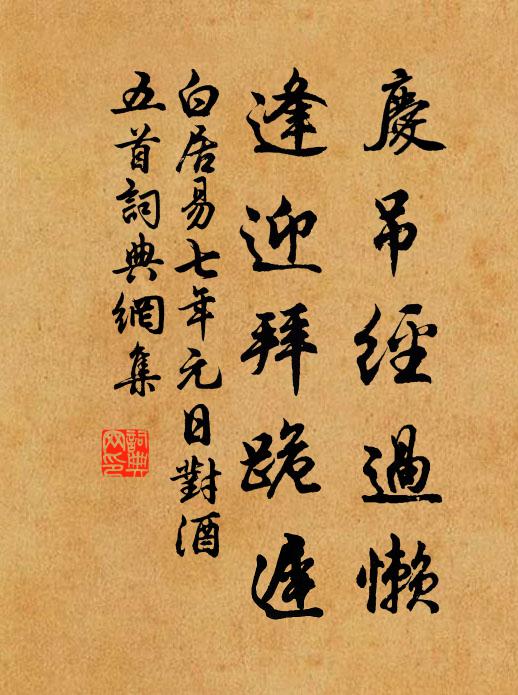 慶吊經過懶
逢迎拜跪遲
白居易七年元日對酒
五首詞典網集
詞典
网印